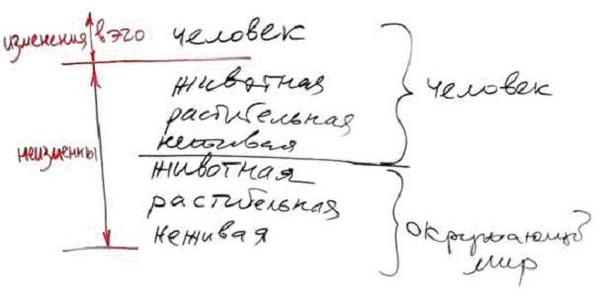 изменения в эго человек
животная
человек
растительная
неживая
неизменны
животная
растительная
неживая
окружающий
мир